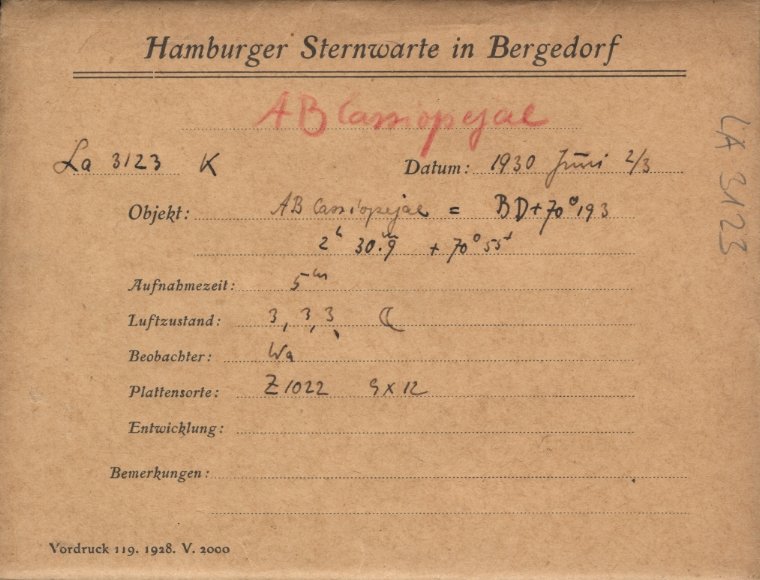 Hamburger Sternwarte in Bergedorf
AB Cassiopejae
La 3123 K Datum: 1930 Juni 2/3
Objekt: AB Cassiopejae = BD+70°193
2ʰ 30ᵐ.9 +70°55'
Aufnahmezeit: 5ᵐ
Luftzustand: 3, 3, 3, ☾
Beobachter: Wa
Plattensorte: Z 1022 9x12
Entwicklung:
Bemerkungen:
Vordruck 119. 1928. V. 2000
LA 3123